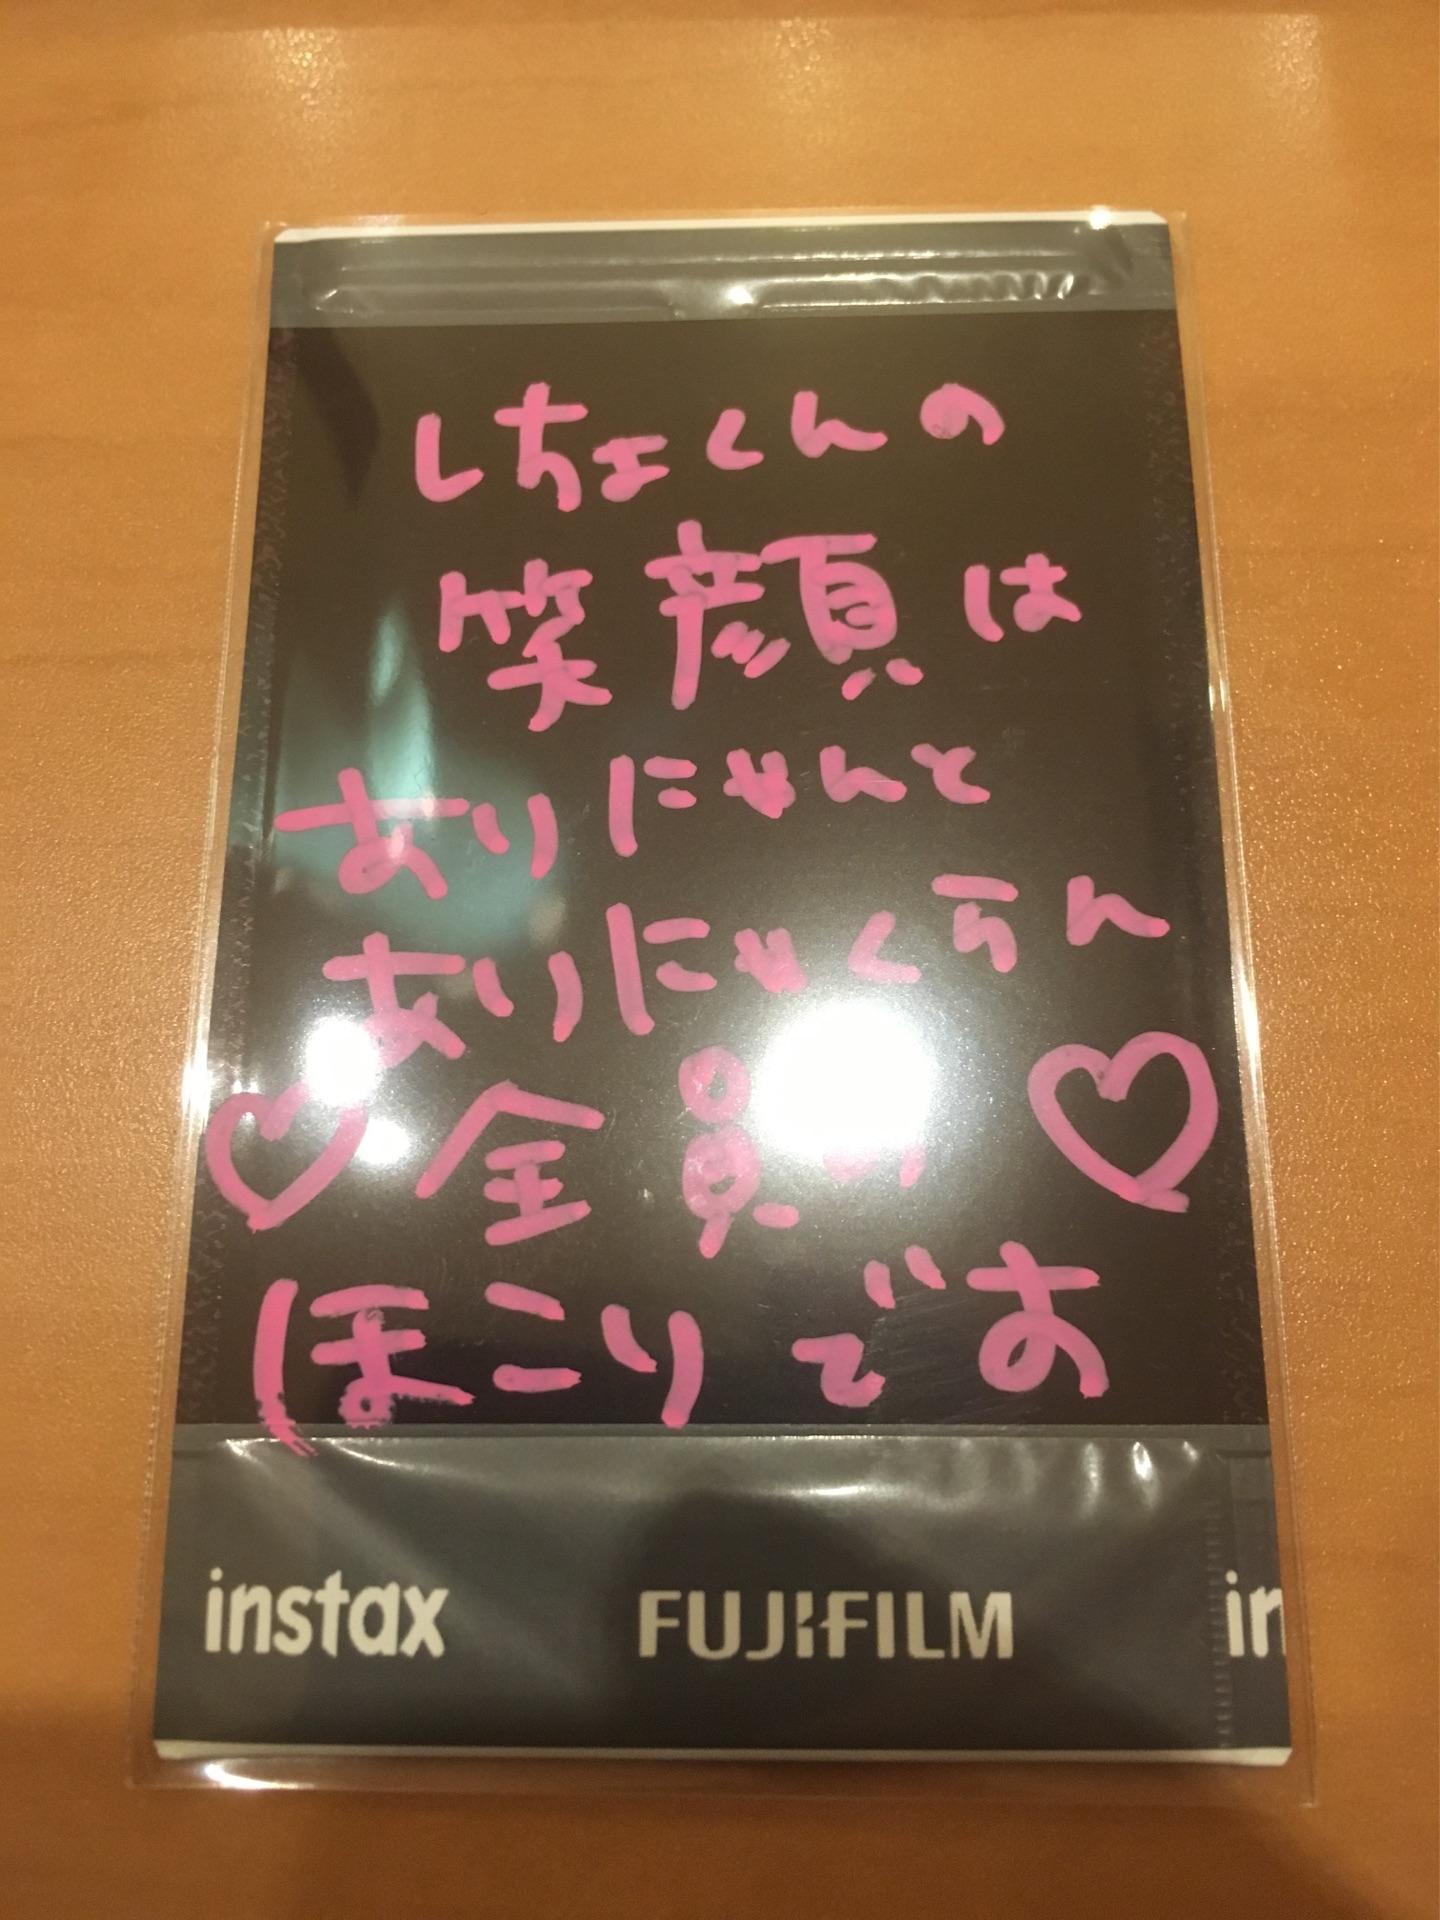 しちょくんの
笑顔は
ありにゃんと
ありにゃくらん
♡全員の♡
ほこりです
instax FUJIFILM in